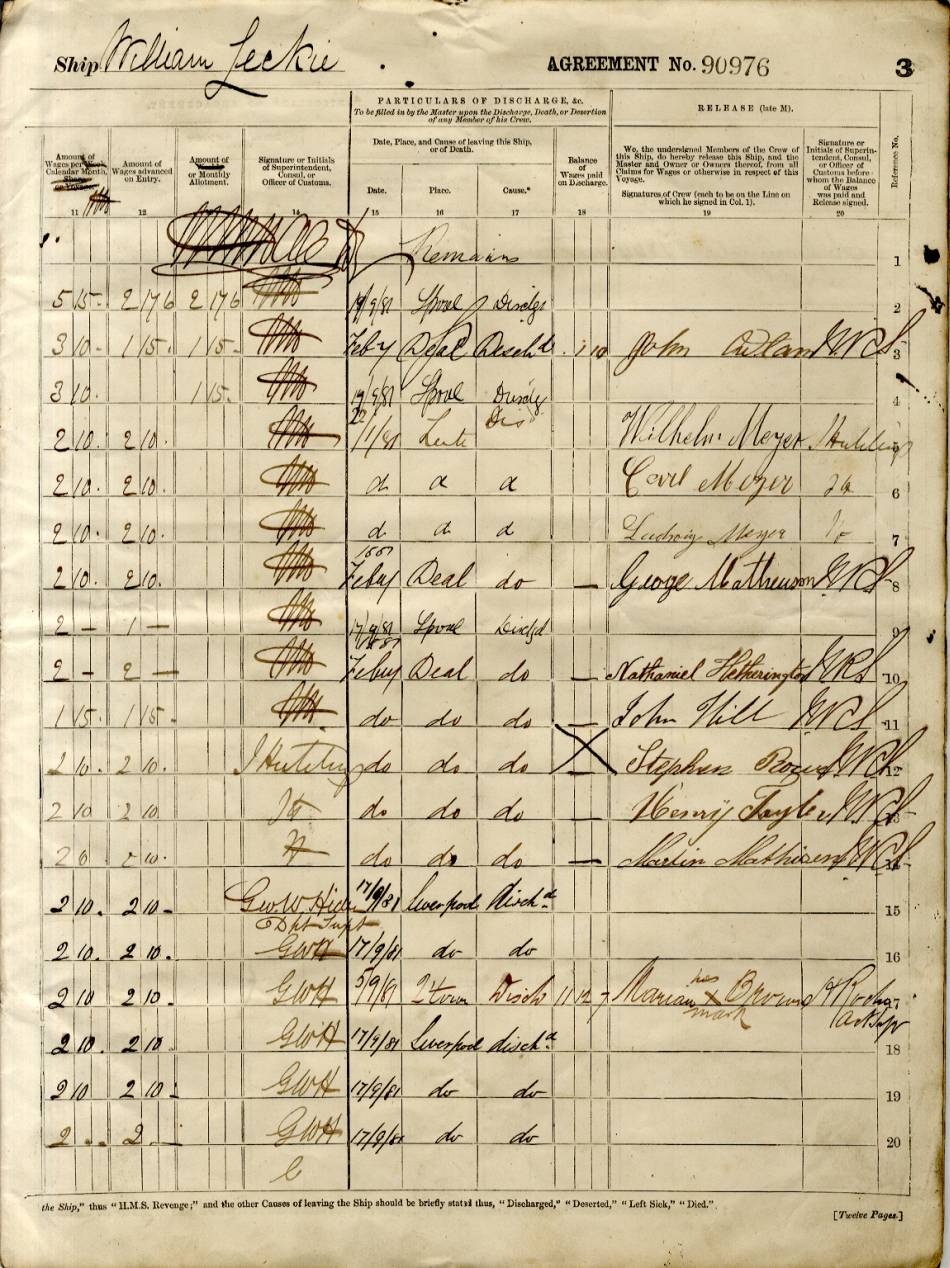 Ship William Leckie AGREEMENT No. 90976 3
PARTICULARS OF DISCHARGE, &c.
To be filled in by the Master upon the Discharge, Death, or Desertion
of any Member of his Crew.
RELEASE (late M).
Reference No.
Amount of
Wages per Week
Calendar Month,
Amount of
Wages advanced
on Entry.
Amount of
or Monthly
Allotment.
Signature or Initials
of Superintendent,
Consul, or
Officer of Customs.
Date, Place, and Cause of leaving this Ship,
or of Death.
Date. Place. Cause.*
Balance
of Wages
paid
on Discharge.
We, the undersigned Members of the Crew of
this Ship, do hereby release this Ship, and the
Master and Owner or Owners thereof, from all
Claims for Wages or otherwise in respect of this
Voyage.
Signatures of Crew (each to be on the Line on
which he signed in Col. 1).
Signature or
Initials of Superin-
tendent, Consul, or
Officer of Customs before
whom the Balance
of Wages
was paid and
Release signed.
11 12 13 14 15 16 17 18 19 20
Remains 1
5 15 - 2 17 6 2 17 6 19/9/81 Lpool Dischge 2
3 10 - 1 15 - 1 15 - Feby Deal Dischd John WRS 3
3 10 1 15 - 19/9/81 Lpool Dischg 4
2 10 . 2 10 . 22/1/81 Leith Dis Wilhelm Meyer 5
2 10 . 2 10 . d d d Carl Meyer 6
2 10 . 2 10 . d d d Ludwig Meyer 7
2 10 . 2 10 . Feby Deal do — George Mathewson WRS 8
2 — 1 — 17/9/81 Lpool Dischd 9
2 - 2 — Feby Deal do — Nathaniel Hetherington WRS 10
1 15 . 1 15 . do do do — John Hill WRS 11
2 10 . 2 10 . do do do — Stephen WRS 12
2 10 2 10 . do do do — Henry Tayler WRS 13
do do do — Martin Mathisen WRS
2 10 . 2 10 - Geo. W. 17/9/81 Liverpool dischd 15
Dpt Supt
2 10 . 2 10 . GWH 17/9/81 do do 16
2 10 2 10 . GWH 5/9/81 Disch 11 12 7 Marian his X mark Brown 17
2 10 . 2 10 . GWH 17/9/81 Liverpool dischd 18
2 10 2 10 . GWH 17/9/81 do do 19
2 . . 2 — GWH 17/9/81 do do 20
the Ship," thus "H.M.S. Revenge;" and the other Causes of leaving the Ship should be briefly stated thus, "Discharged," "Deserted," "Left Sick," "Died."
[Twelve Pages.]